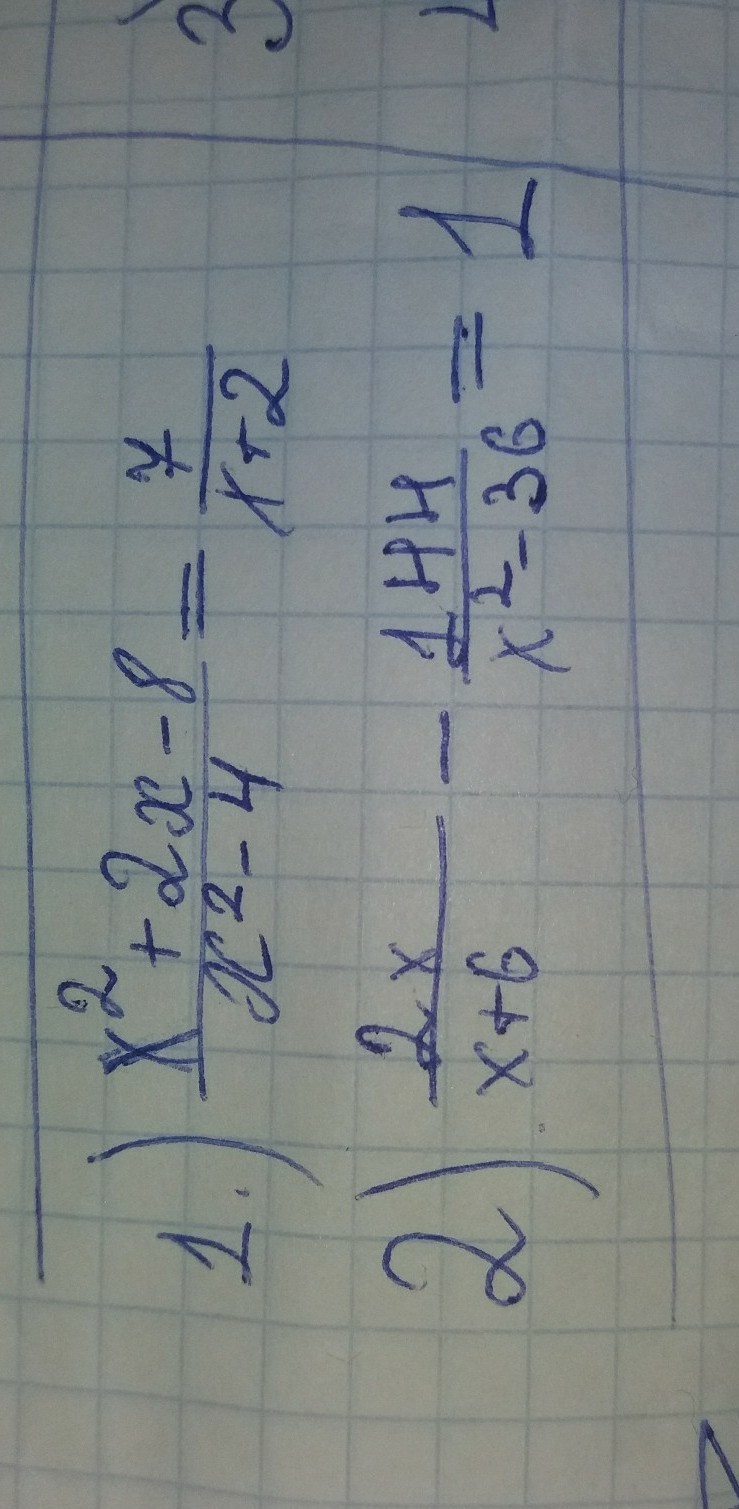 1.) \frac{x^2+2x-8}{x^2-4} = \frac{7}{x+2}
2) \frac{2x}{x+6} - \frac{144}{x^2-36} = 1
3)